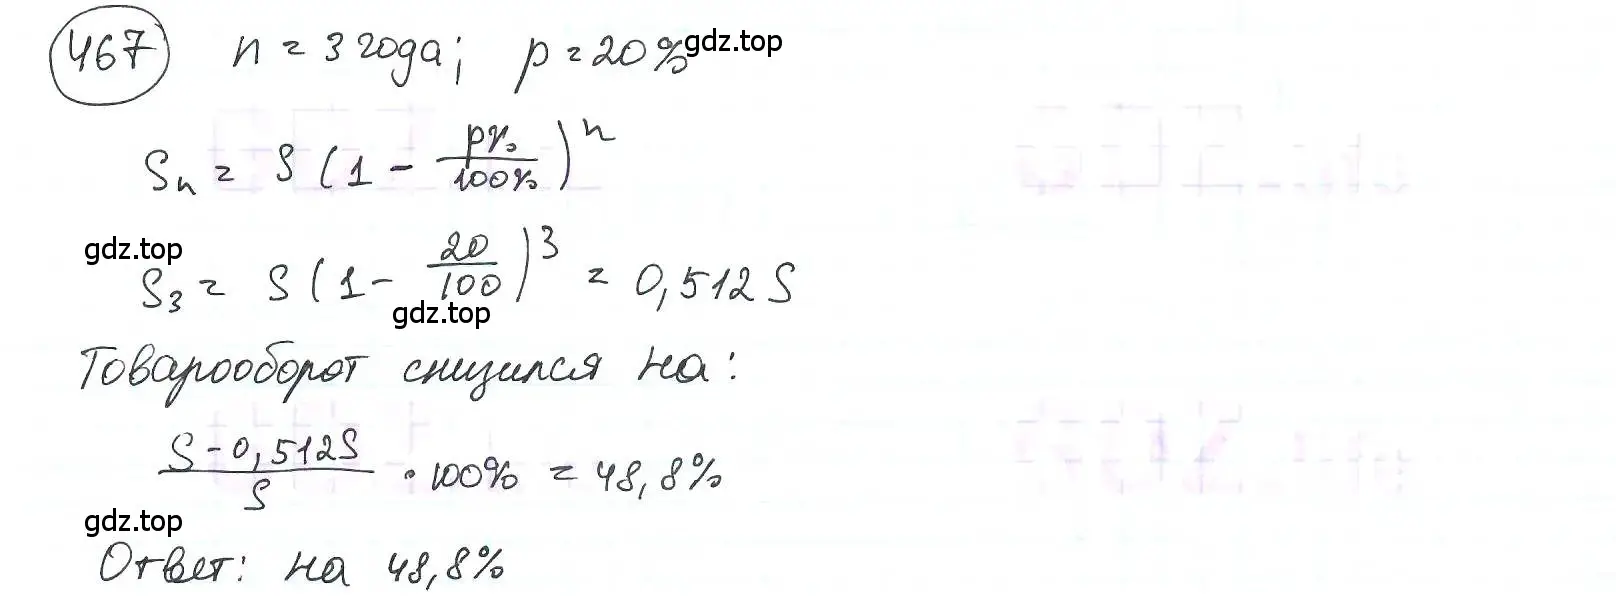 467 n = 3 года; p = 20% gdz.top
Sn = S (1 - p%/100%)^n
gdz.top
S3 = S (1 - 20/100)^3 = 0,512 S
gdz.top
Товарооборот снизился на:
(S - 0,512S)/S · 100% = 48,8%
gdz.top
Ответ: на 48,8%